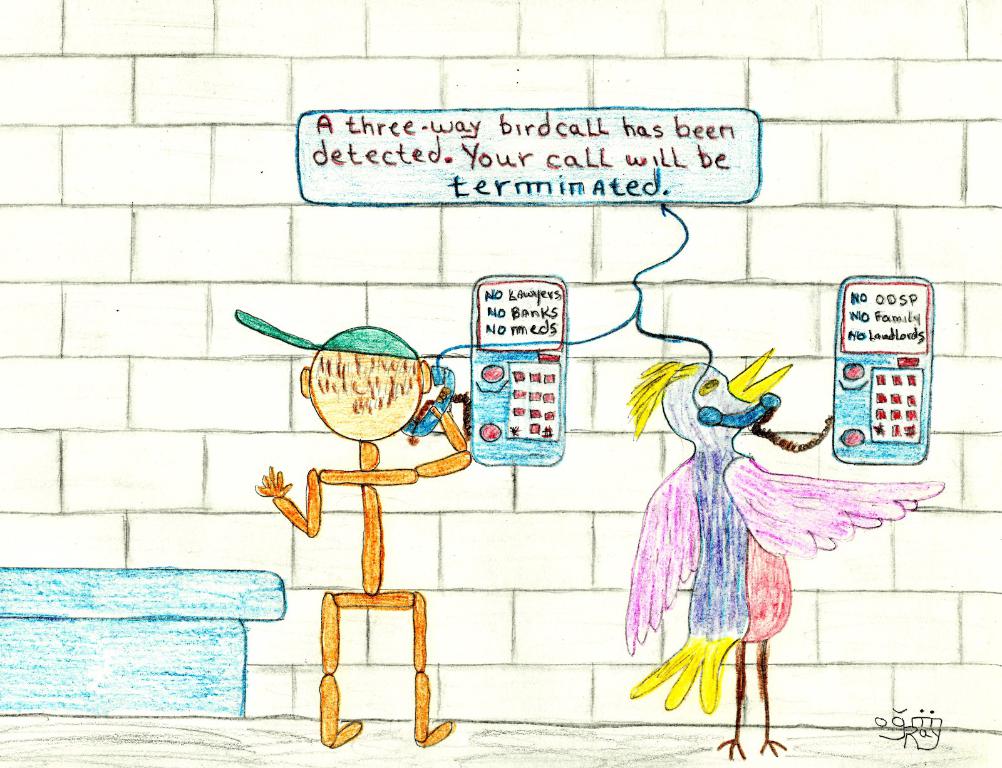 A three-way birdcall has been
detected. Your call will be
terminated.
NO Lawyers
NO BANKS
NO meds
NO ODSP
NO Family
NO Landlords
* #
* #
Ray